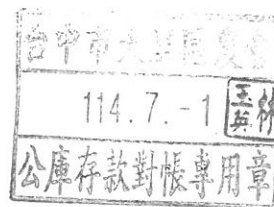 台中市
114.7.-1
王英林
公庫存款對帳專用章